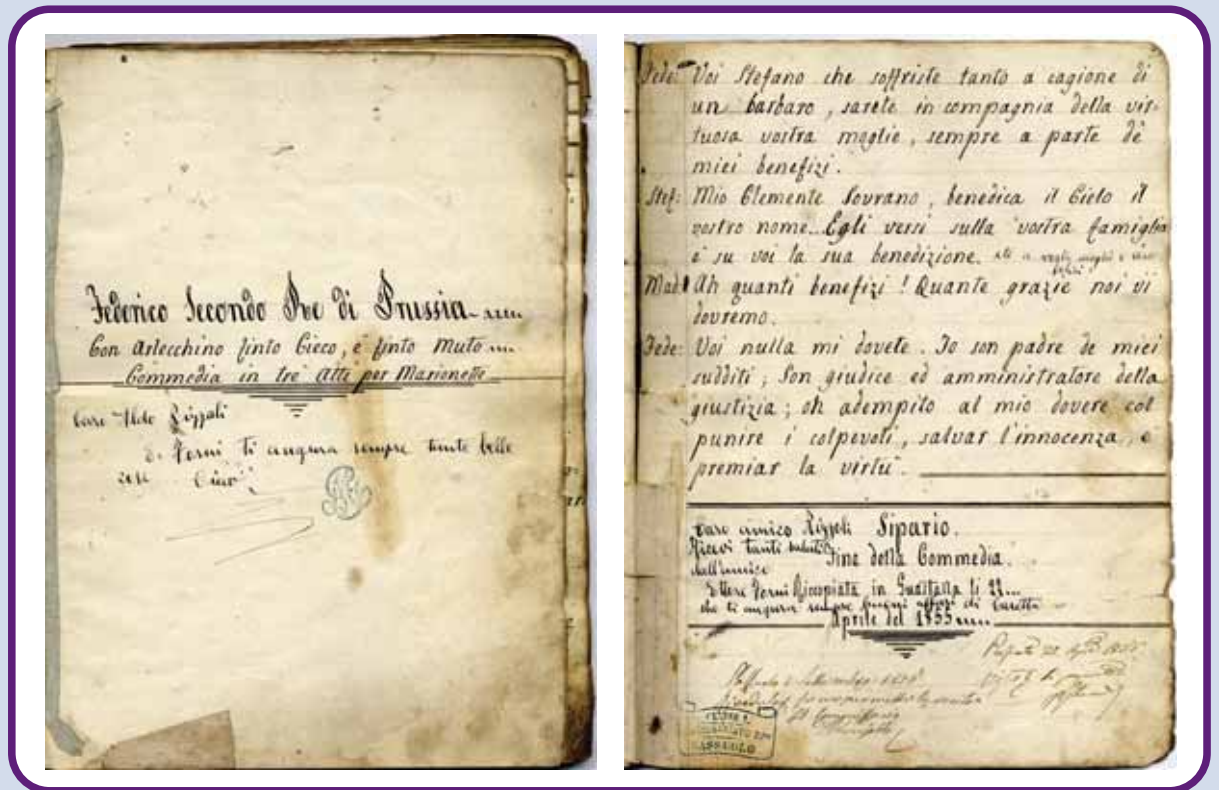 Federico Secondo Re di Prussia
Con Arlecchino finto Cieco, e finto Muto
Commedia in tre Atti per Marionette
Caro Aldo Rizzoli
Forni ti augura sempre tante belle
cose Ciao
Fede: Voi Stefano che soffriste tanto a cagione di
un barbaro, sarete in compagnia della vir-
tuosa vostra moglie, sempre a parte de
miei benefizi.
Stef: Mio Clemente Sovrano, benedica il Cielo il
vostro nome. Egli versi sulla vostra famiglia
e su voi la sua benedizione.
Mad: Ah quanti benefizi! Quante grazie noi vi
dovremo.
Fede: Voi nulla mi dovete. Io son padre de miei
sudditi; Son giudice ed amministratore della
giustizia; oh adempito al mio dovere col
punire i colpevoli, salvar l'innocenza, e
premiar la virtu'.
Caro amico Rizzoli Sipario.
Ricevi tanti saluti
dall'amico Fine della Commedia.
Ettore Forni Ricopiata in Guastalla li 22...
che ti augura sempre buoni affari di
Aprile del 1855
SASSUOLO